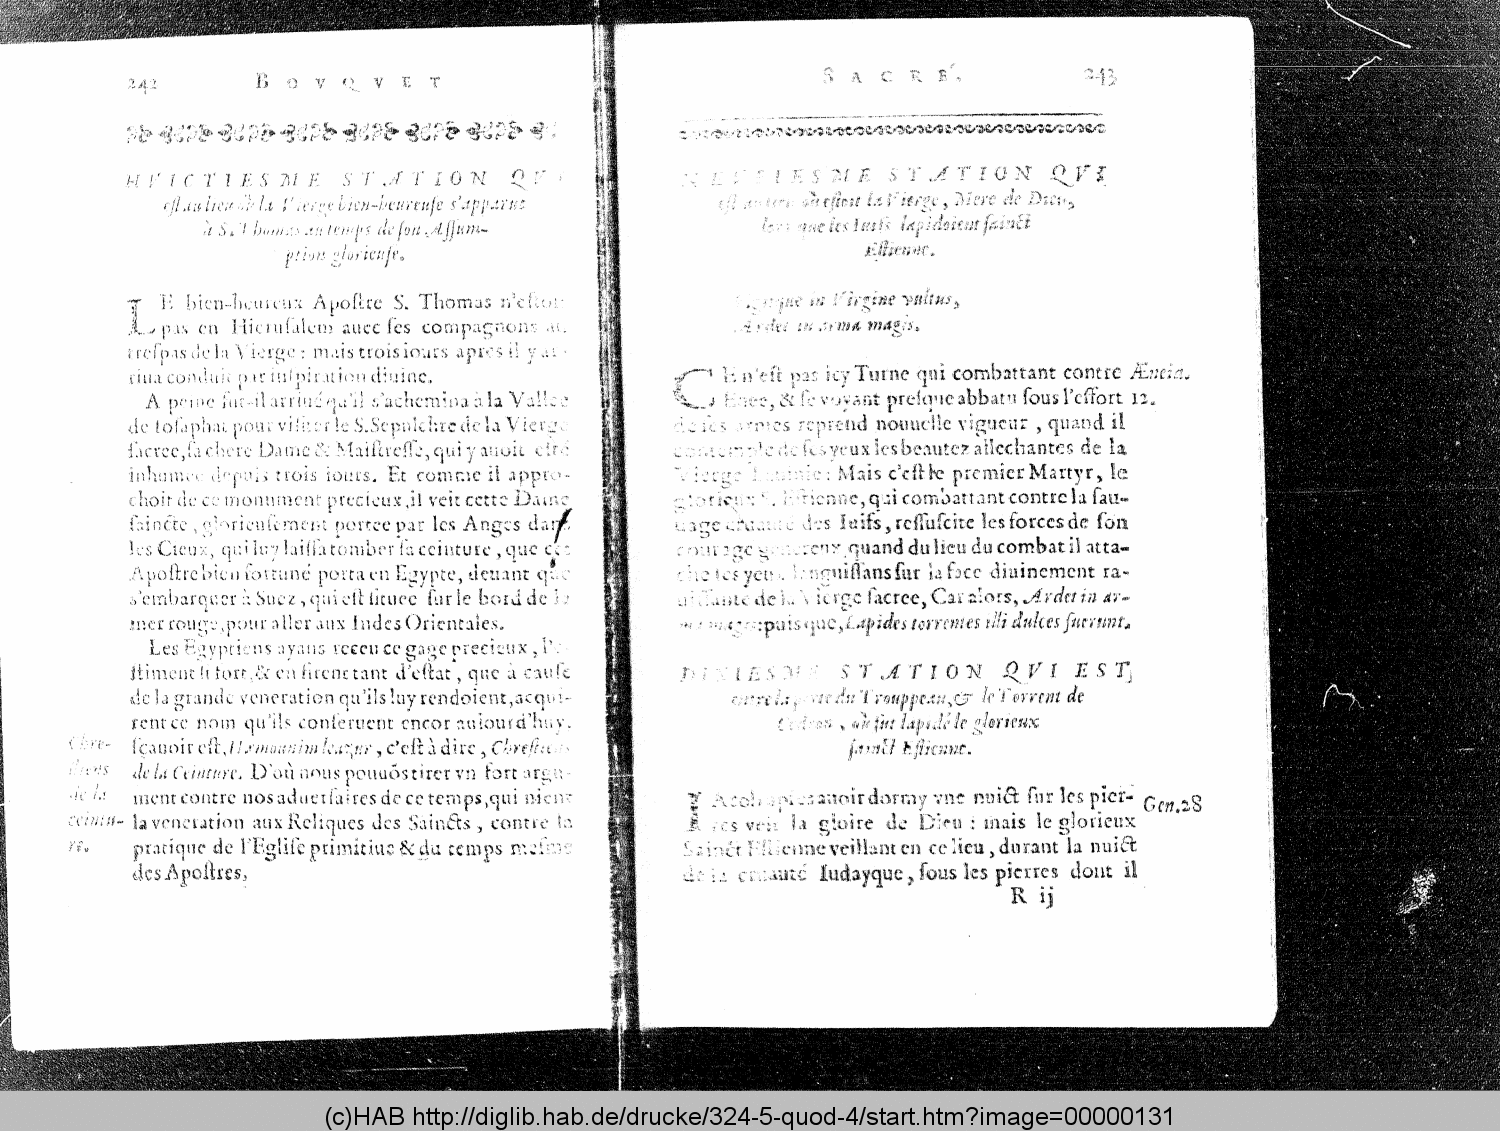 242 BOVQVET
HVICTIESME STATION QVI
est au lieu où la Vierge bien-heureuse s'apparut
à S. Thomas au temps de son Assum-
ption glorieuse.
LE bien-heureux Apostre S. Thomas n'estoit
pas en Hierusalem auec ses compagnons au
trespas de la Vierge : mais trois iours apres il y ar-
riua conduit par inspiration diuine.
A peine fut-il arriué qu'il s'achemina à la Vallee
de Iosaphat pour visiter le S. Sepulchre de la Vierge
sacree, sa chere Dame & Maistresse, qui y auoit esté
inhumee depuis trois iours. Et comme il appro-
choit de ce monument precieux, il veit cette Dame
saincte, glorieusement portee par les Anges dans
les Cieux, qui luy laissa tomber sa ceinture, que cet
Apostre bien fortuné porta en Egypte, deuant que
s'embarquer à Suez, qui est situee sur le bord de la
mer rouge, pour aller aux Indes Orientales.
Les Egyptiens ayans receu ce gage precieux, l'e-
stiment si fort, & en firent tant d'estat, que à cause
de la grande veneration qu'ils luy rendoient, acqui-
rent ce nom qu'ils conseruent encor auiourd'huy.
sçauoir est, c'est à dire, Chrestiens
de la Ceinture. D'où nous pouuõs tirer vn fort argu-
ment contre nos aduersaires de ce temps, qui nient
la veneration aux Reliques des Saincts, contre la
pratique de l'Eglise primitiue & du temps mesme
des Apostres,
Chre-
stiens
de la
ceintu-
re.
SACRÉ. 243
NEVFIESME STATION QVI
est au lieu où estoit la Vierge, Mere de Dieu,
lors que les Iuifs lapidoient sainct
Estienne.
in Virgine vultus,
Ardet in arma magis.
CE n'est pas icy Turne qui combattant contre
Enee, & se voyant presque abbatu sous l'effort
de ses armes reprend nouuelle vigueur, quand il
contemple de ses yeux les beautez allechantes de la
Vierge Lauinie : Mais c'est le premier Martyr, le
glorieux S. Estienne, qui combattant contre la sau-
uage cruauté des Iuifs, ressuscite les forces de son
courage genereux quand du lieu du combat il atta-
che ses yeux languissans sur la face diuinement ra-
uissante de la Vierge sacree, Car alors, Ardet in ar-
ma magis: puis que, Lapides torrentes illi dulces fuerunt.
Æneid.
12.
DIXIESME STATION QVI EST
entre la porte du Trouppeau, & le Torrent de
Cedron, où fut lapidé le glorieux
sainct Estienne.
IAcob apres auoir dormy vne nuict sur les pier-
res veit la gloire de Dieu : mais le glorieux
Sainct Estienne veillant en ce lieu, durant la nuict
de la cruauté Iudayque, sous les pierres dont il
Gen. 28
R ij
(c)HAB http://diglib.hab.de/drucke/324-5-quod-4/start.htm?image=00000131